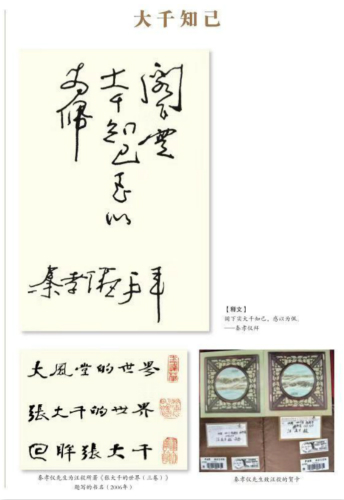 大千知己
阁下实
大千知己甚以
为佩
秦孝仪手拜
【释文】
阁下实大千知己，甚以为佩。
——秦孝仪拜
大风堂的世界
張大千的世界
回眸張大千
秦孝仪先生为汪毅所著《张大千的世界（三卷）》
题写的书名（2006年）
秦孝仪先生致汪毅的贺卡